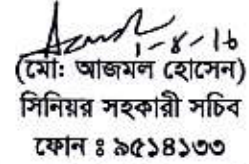 1-8-16
(মোঃ আজমল হোসেন)
সিনিয়র সহকারী সচিব
ফোন ঃ ৯৫১৪১৩৩